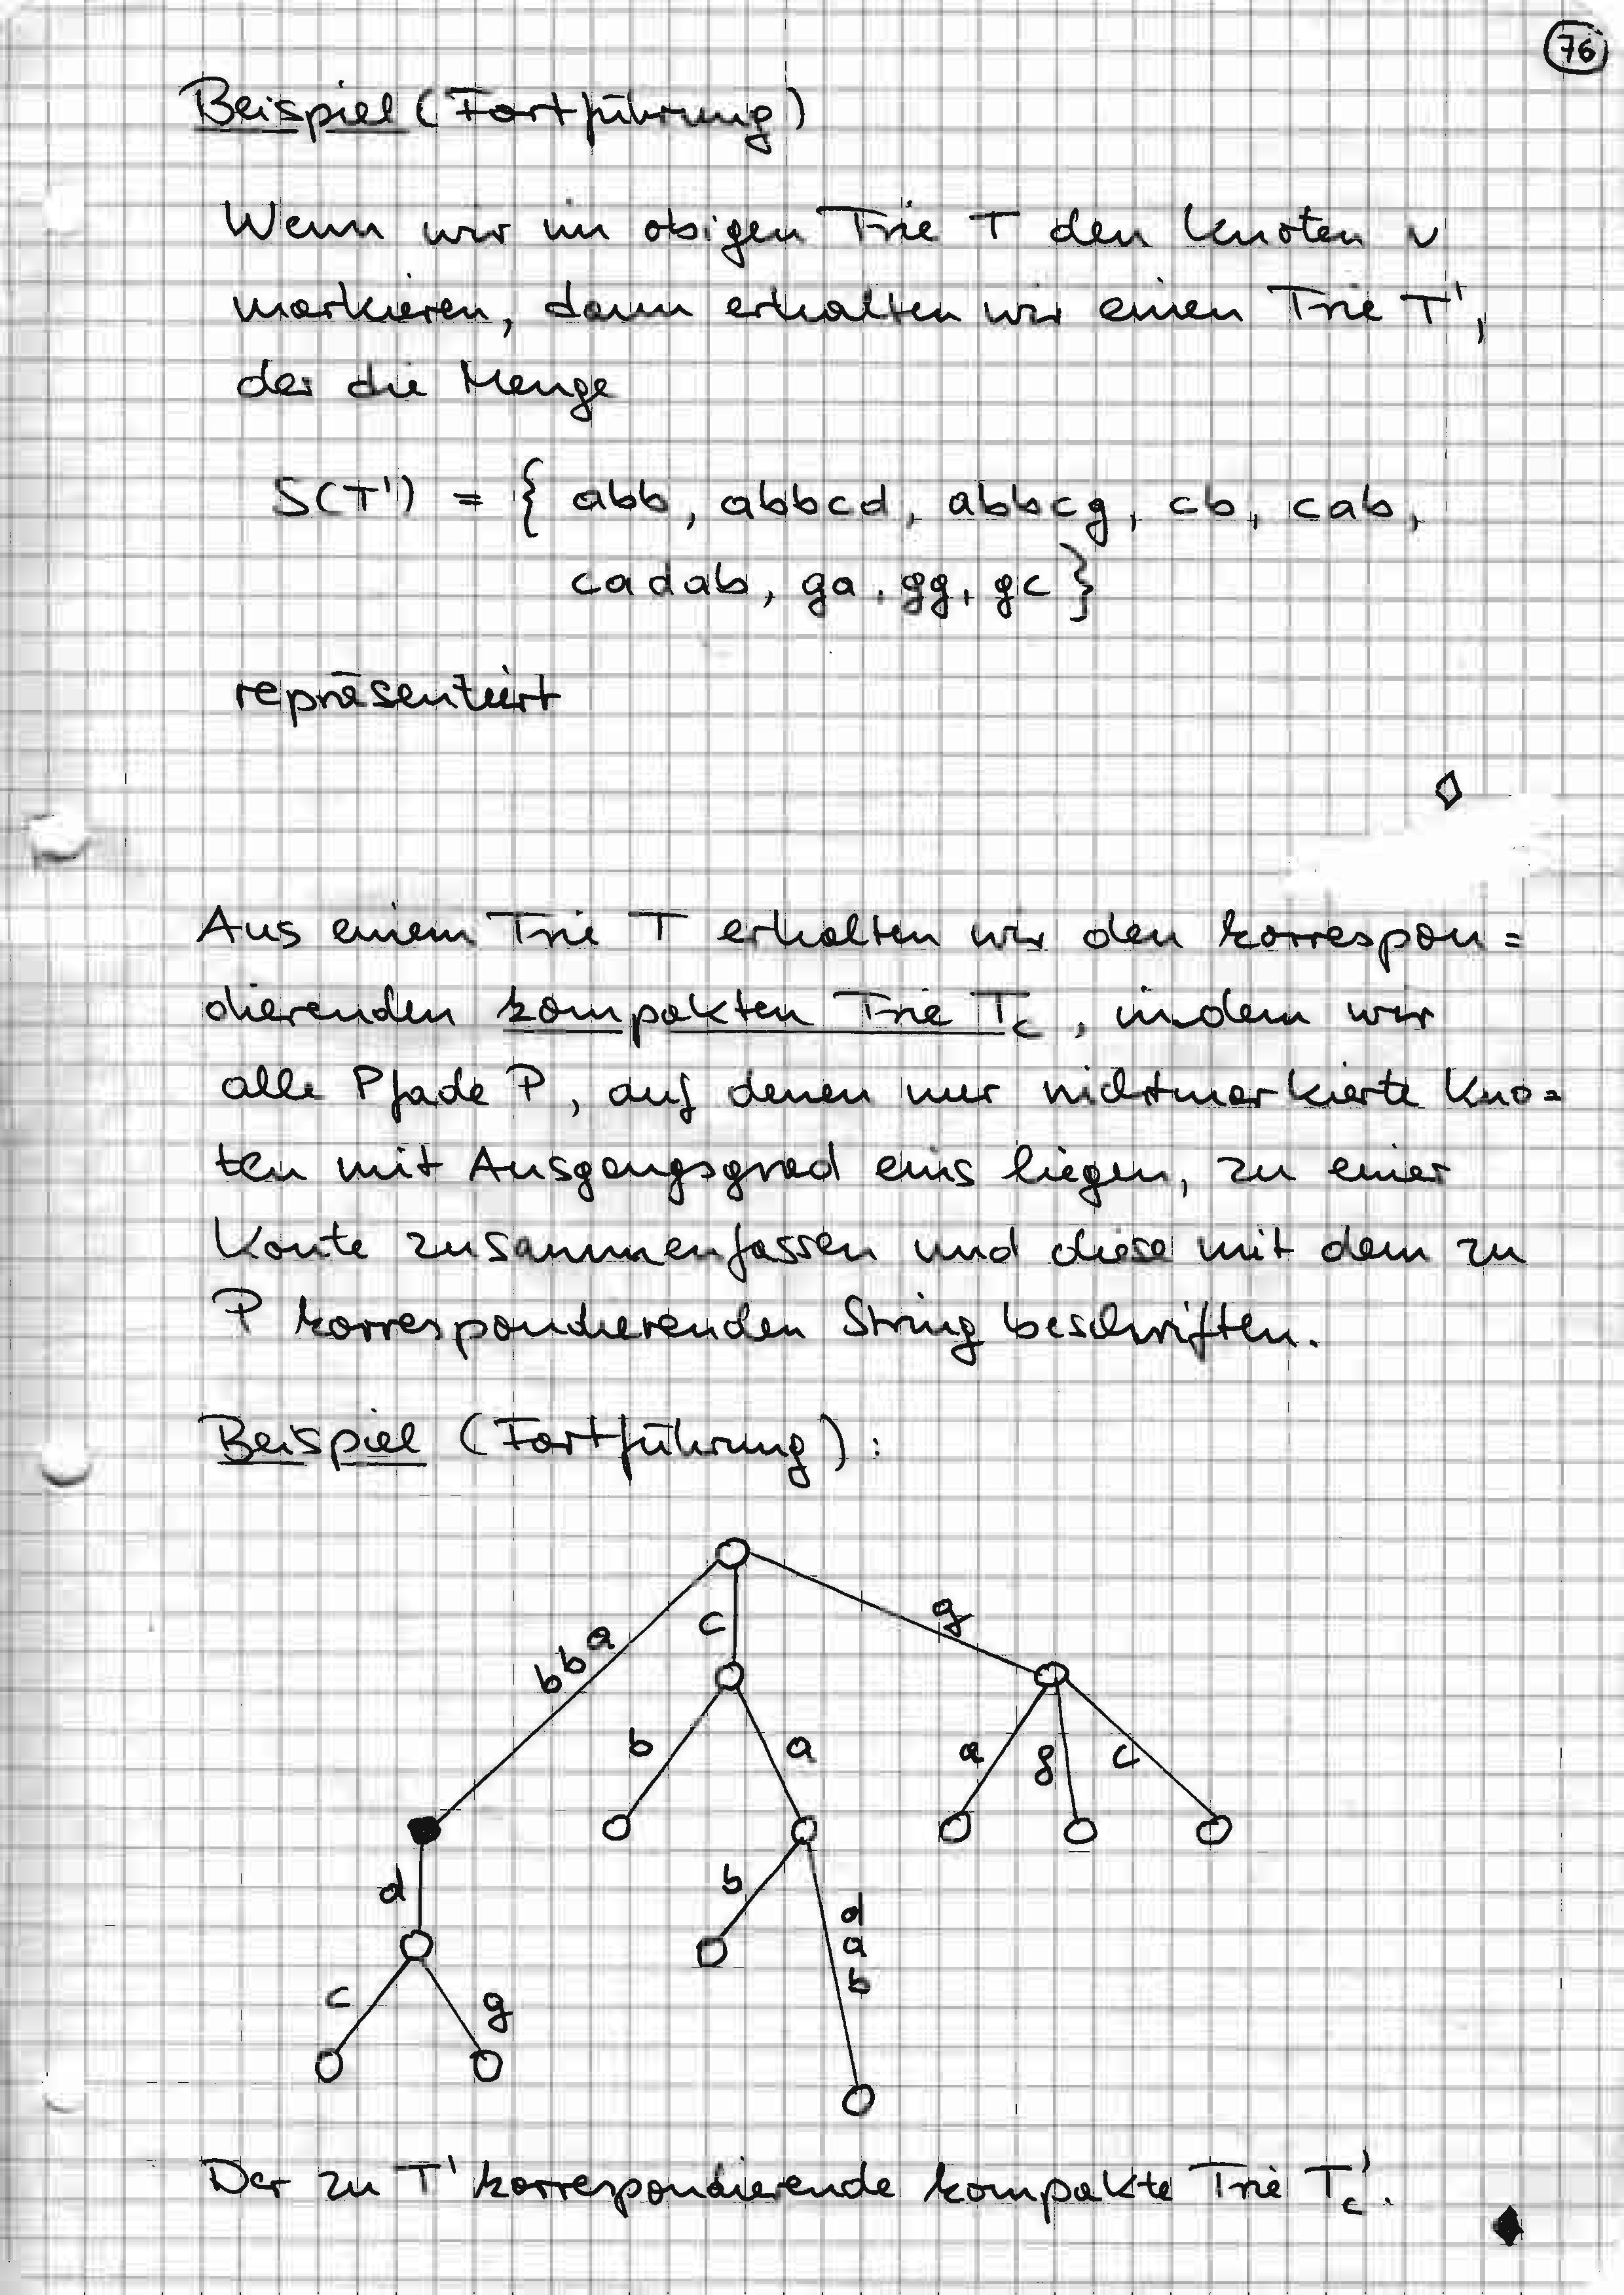 76
Beispiel (Fortführung)
Wenn wir im obigen Trie T den Knoten v
markieren, dann erhalten wir einen Trie T',
der die Menge
S(T') = { abb, abbcd, abbcg, cb, cab,
cadab, ga, gg, gc }
repräsentiert
◊
Aus einem Trie T erhalten wir den korrespon=
dierenden kompakten Trie T_c, indem wir
alle Pfade P, auf denen nur nichtmarkierte Kno=
ten mit Ausgangsgrad eins liegen, zu einer
Kante zusammenfassen und diese mit dem zu
P korrespondierenden String beschriften.
Beispiel (Fortführung):
a b b
c
g
b
a
a
g
c
d
b
d a b
c
g
Der zu T' korrespondierende kompakte Trie T_c'.
♦